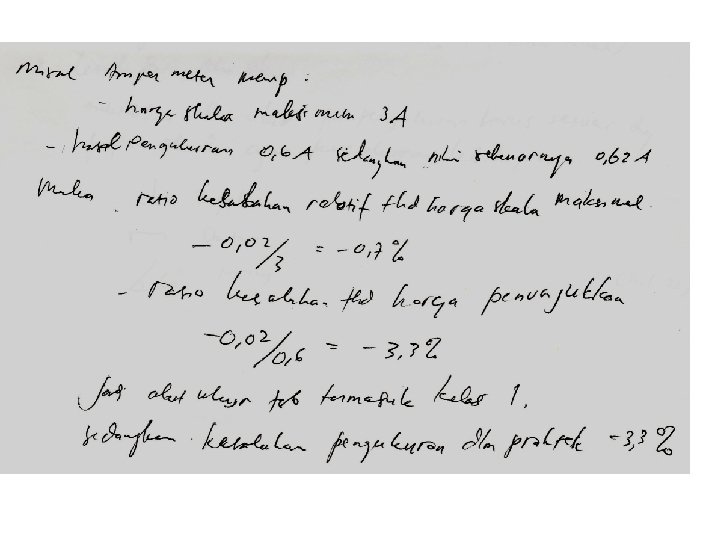 misal Amper meter memp :
- harga skala maksimum 3A
- hasil pengukuran 0,6 A sedangkan nilai sebenarnya 0,62 A
maka ratio kesalahan relatif thd harga skala maksimal
- 0,02/3 = - 0,7 %
- ratio kesalahan thd harga penunjukkan
-0,02/0,6 = - 3,3 %
Jadi alat ukur tsb termasuk kelas 1.
sedangkan kesalahan pengukuran dlm praktek -3,3 %